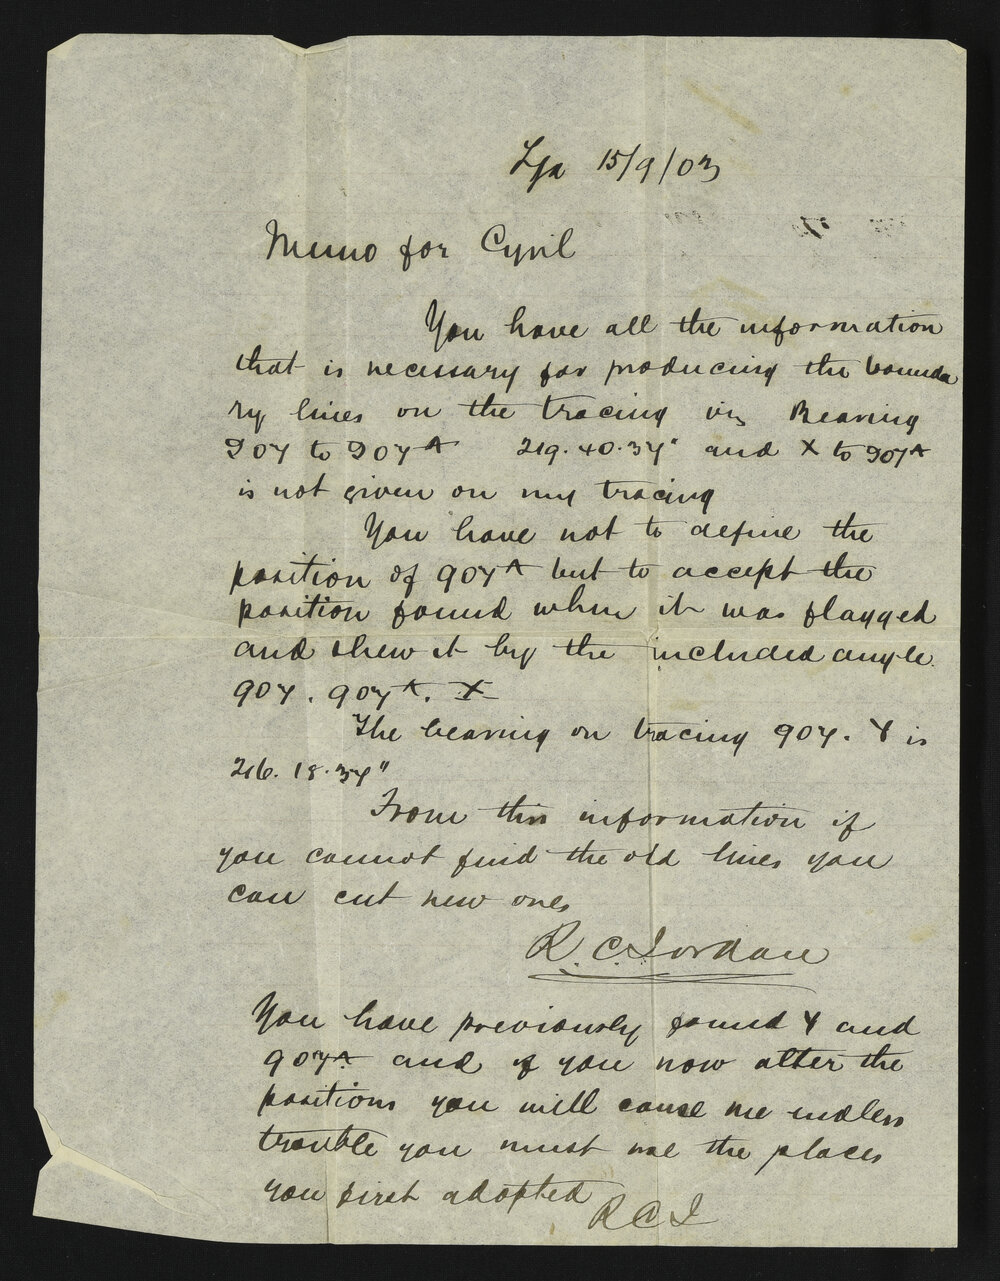 15/9/03
Memo for Cyril
You have all the information
that is necessary for producing the bounda
ry lines on the tracing viz Bearing
904 to 904A 219.40.34" and X to 904A
is not given on my tracing
You have not to define the
position of 904A but to accept the
position found when it was flagged
and shew it by the included angle
904. 904A. X
The bearing on tracing 904. Y is
216. 18. 34"
From this information if
you cannot find the old lines you
can cut new ones
R. C. Jordan
You have previously found Y and
904A and if you now alter the
positions you will cause me endless
trouble you must use the places
you first adopted
R C J